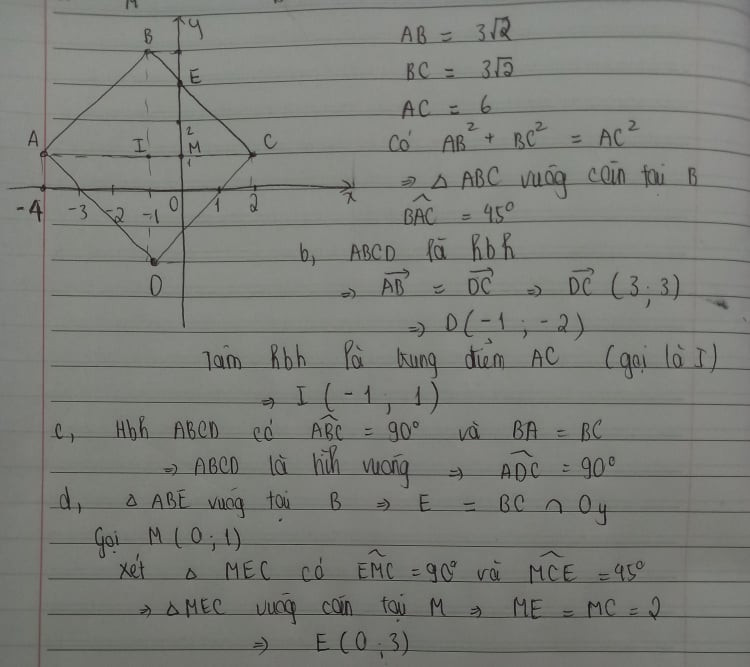 M
y
B
E
A
I
2
M
1
C
-4
-3
-2
-1
0
1
2
x
D
AB = 3√2
BC = 3√2
AC = 6
Có AB² + BC² = AC²
⇒ △ ABC vuông cân tại B
B̂AC = 45°
b, ABCD là hbh
⇒ A⃗B⃗ = D⃗C⃗ ⇒ D⃗C⃗ (3 ; 3)
⇒ D(-1 ; -2)
Tâm hbh là trung điểm AC (gọi là I)
⇒ I (-1 ; 1)
c, Hbh ABCD có ÂBC = 90° và BA = BC
⇒ ABCD là hình vuông ⇒ ÂDC = 90°
d, △ ABE vuông tại B ⇒ E = BC ∩ Oy
Gọi M (0 ; 1)
Xét △ MEC có ÊMC = 90° và M̂CE = 45°
⇒ △MEC vuông cân tại M ⇒ ME = MC = 2
⇒ E (0 ; 3)